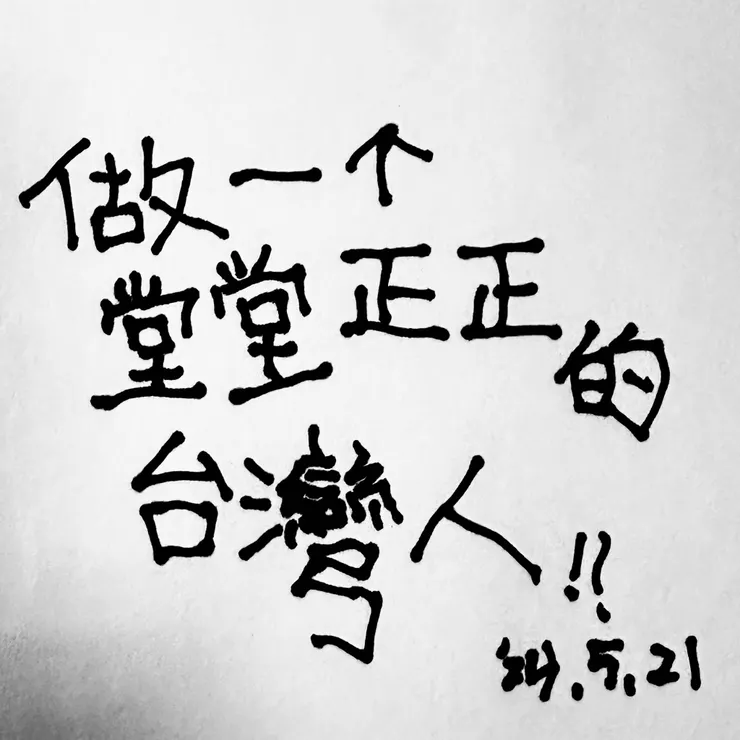 做一个
堂堂正正的
台灣人!!
'24.5.21